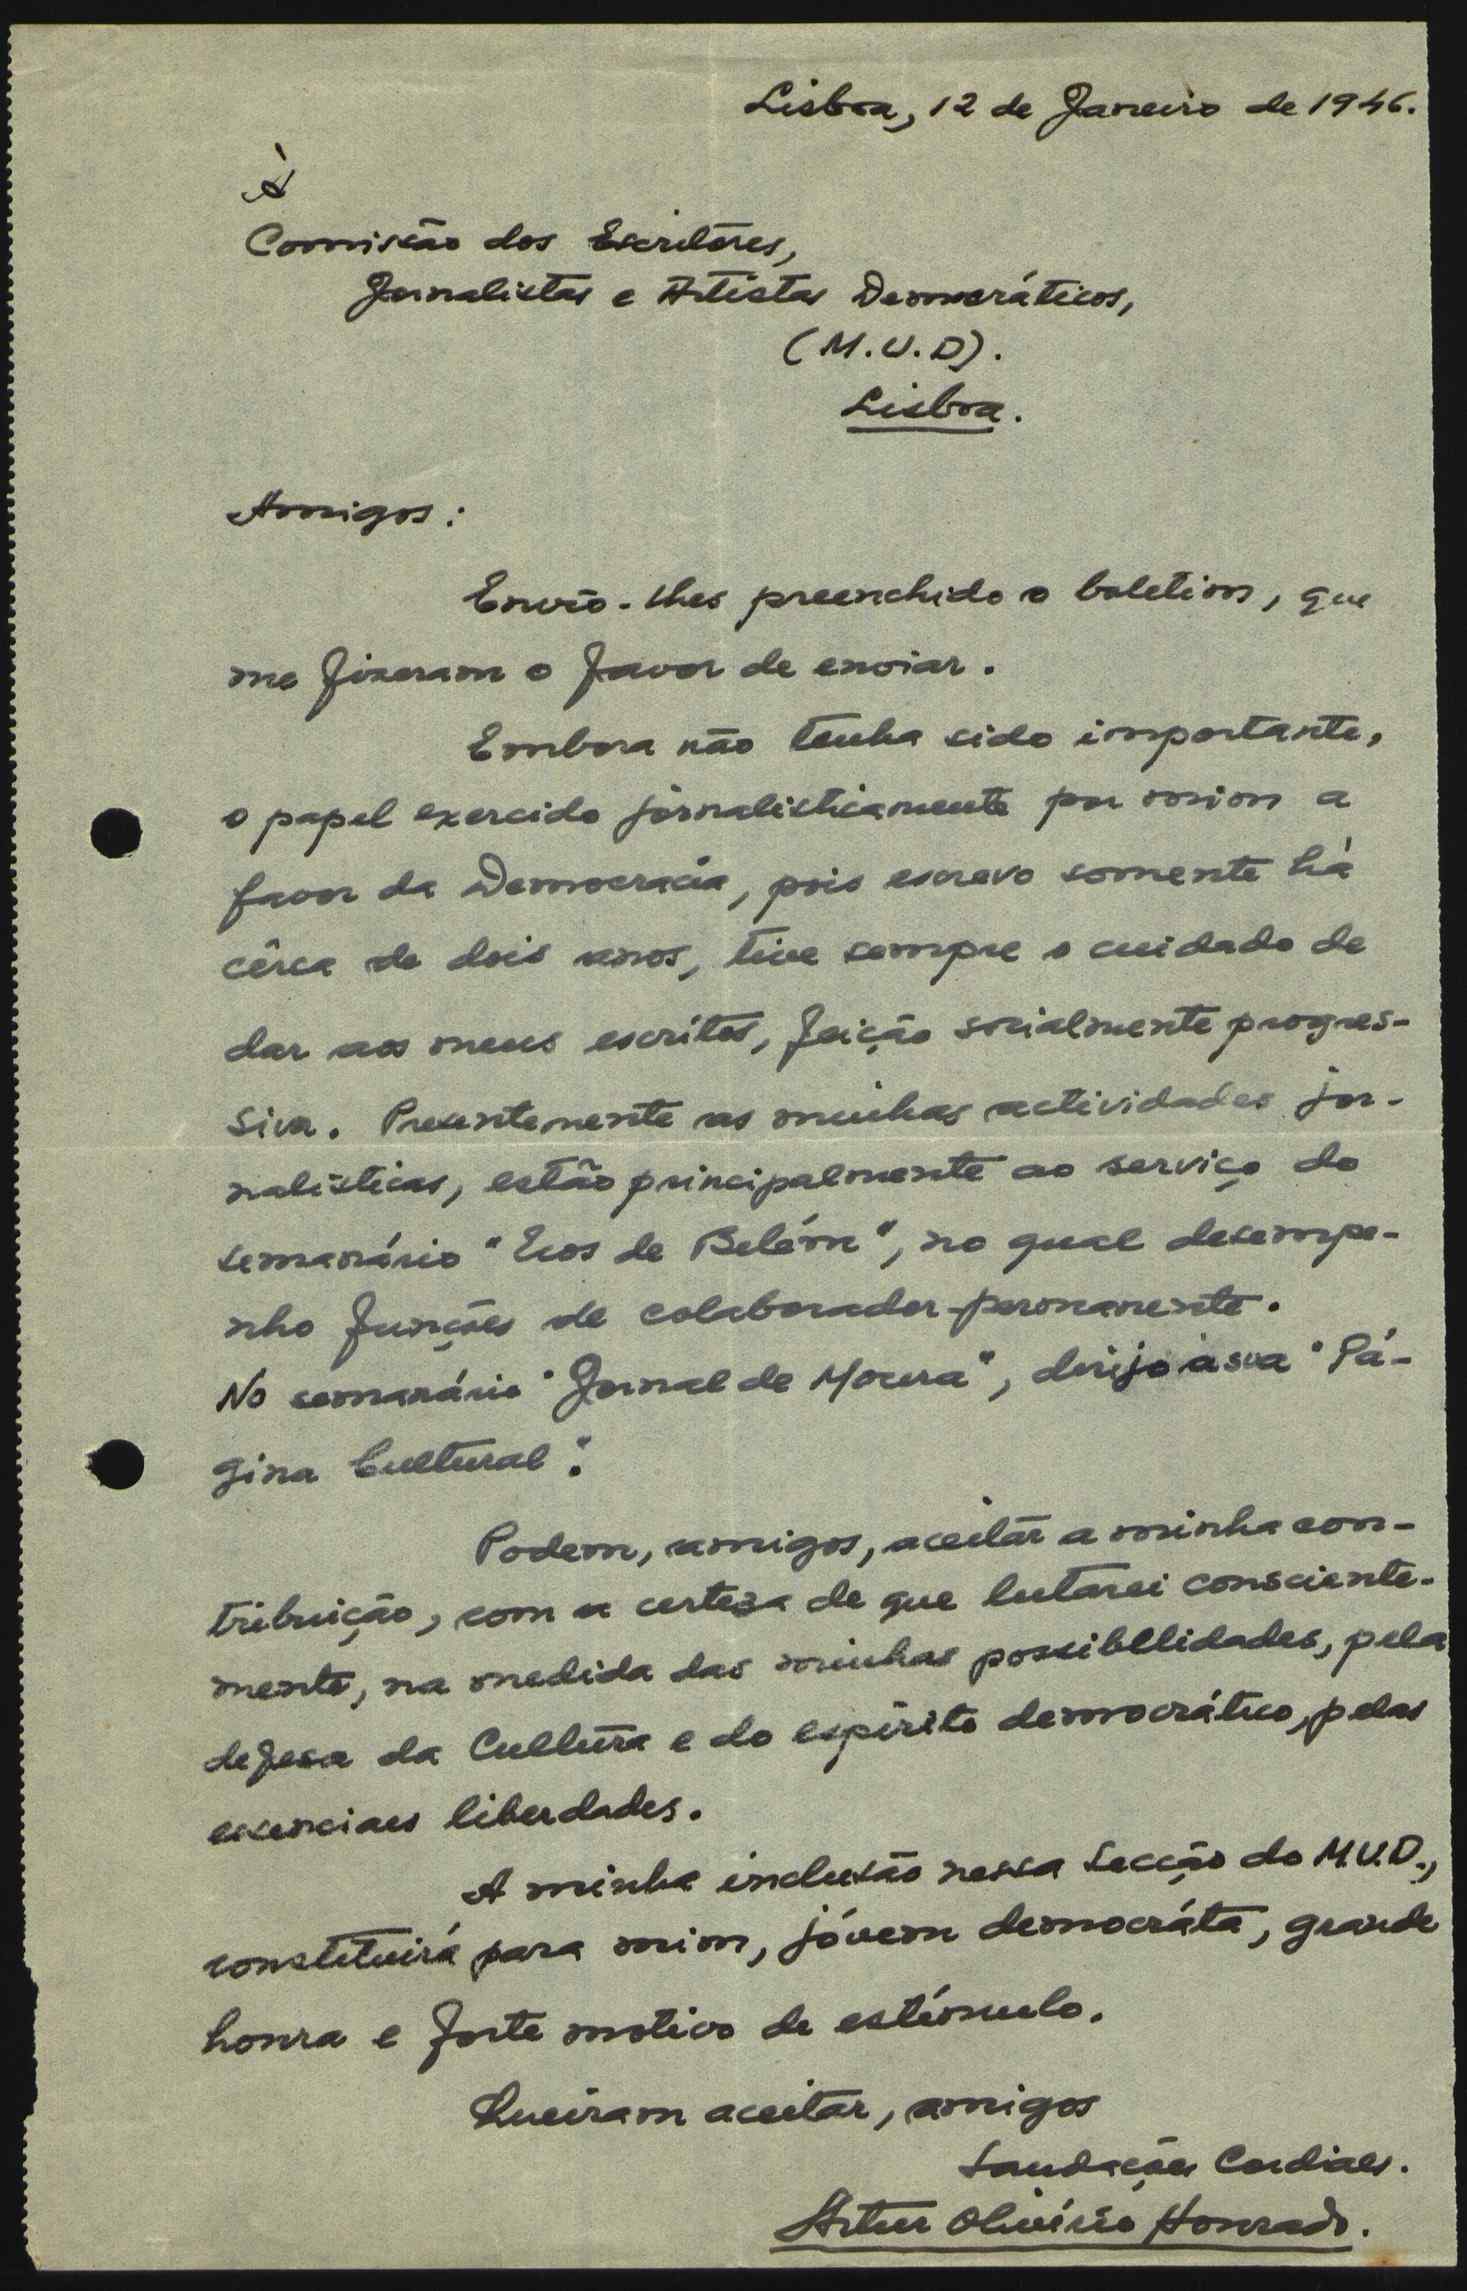 Lisboa, 12 de Janeiro de 1946.
À
Comissão dos Escritôres,
Jornalistas e Artistas Democráticos,
(M.U.D).
Lisboa.
Amigos:
Envio-lhes preenchido o boletim, que
me fizeram o favor de enviar.
Embora não tenha sido importante,
o papel exercido jornalisticamente por mim a
favor da Democracia, pois escrevo somente há
cêrca de dois anos, tive sempre o cuidado de
dar aos meus escritos, feição socialmente progres-
siva. Presentemente as minhas actividades jor-
nalisticas, estão principalmente ao serviço do
semanário "Ecos de Belém", no qual desempe-
nho funções de colaborador-permanente.
No semanário "Jornal de Moura", dirijo a sua "Pá-
gina Cultural".
Podem, amigos, aceitar a minha con-
tribuição, com a certeza de que lutarei consciente-
mente, na medida das minhas possibilidades, pela
defesa da Cultura e do espírito democrático, pelas
essenciaes liberdades.
A minha inclusão nessa Secção do M.U.D.,
constituirá para mim, jóvem democráta, grande
honra e forte motivo de estímulo.
Queiram aceitar, amigos
Saudações Cordiaes.
Artur Olivério Honrado.